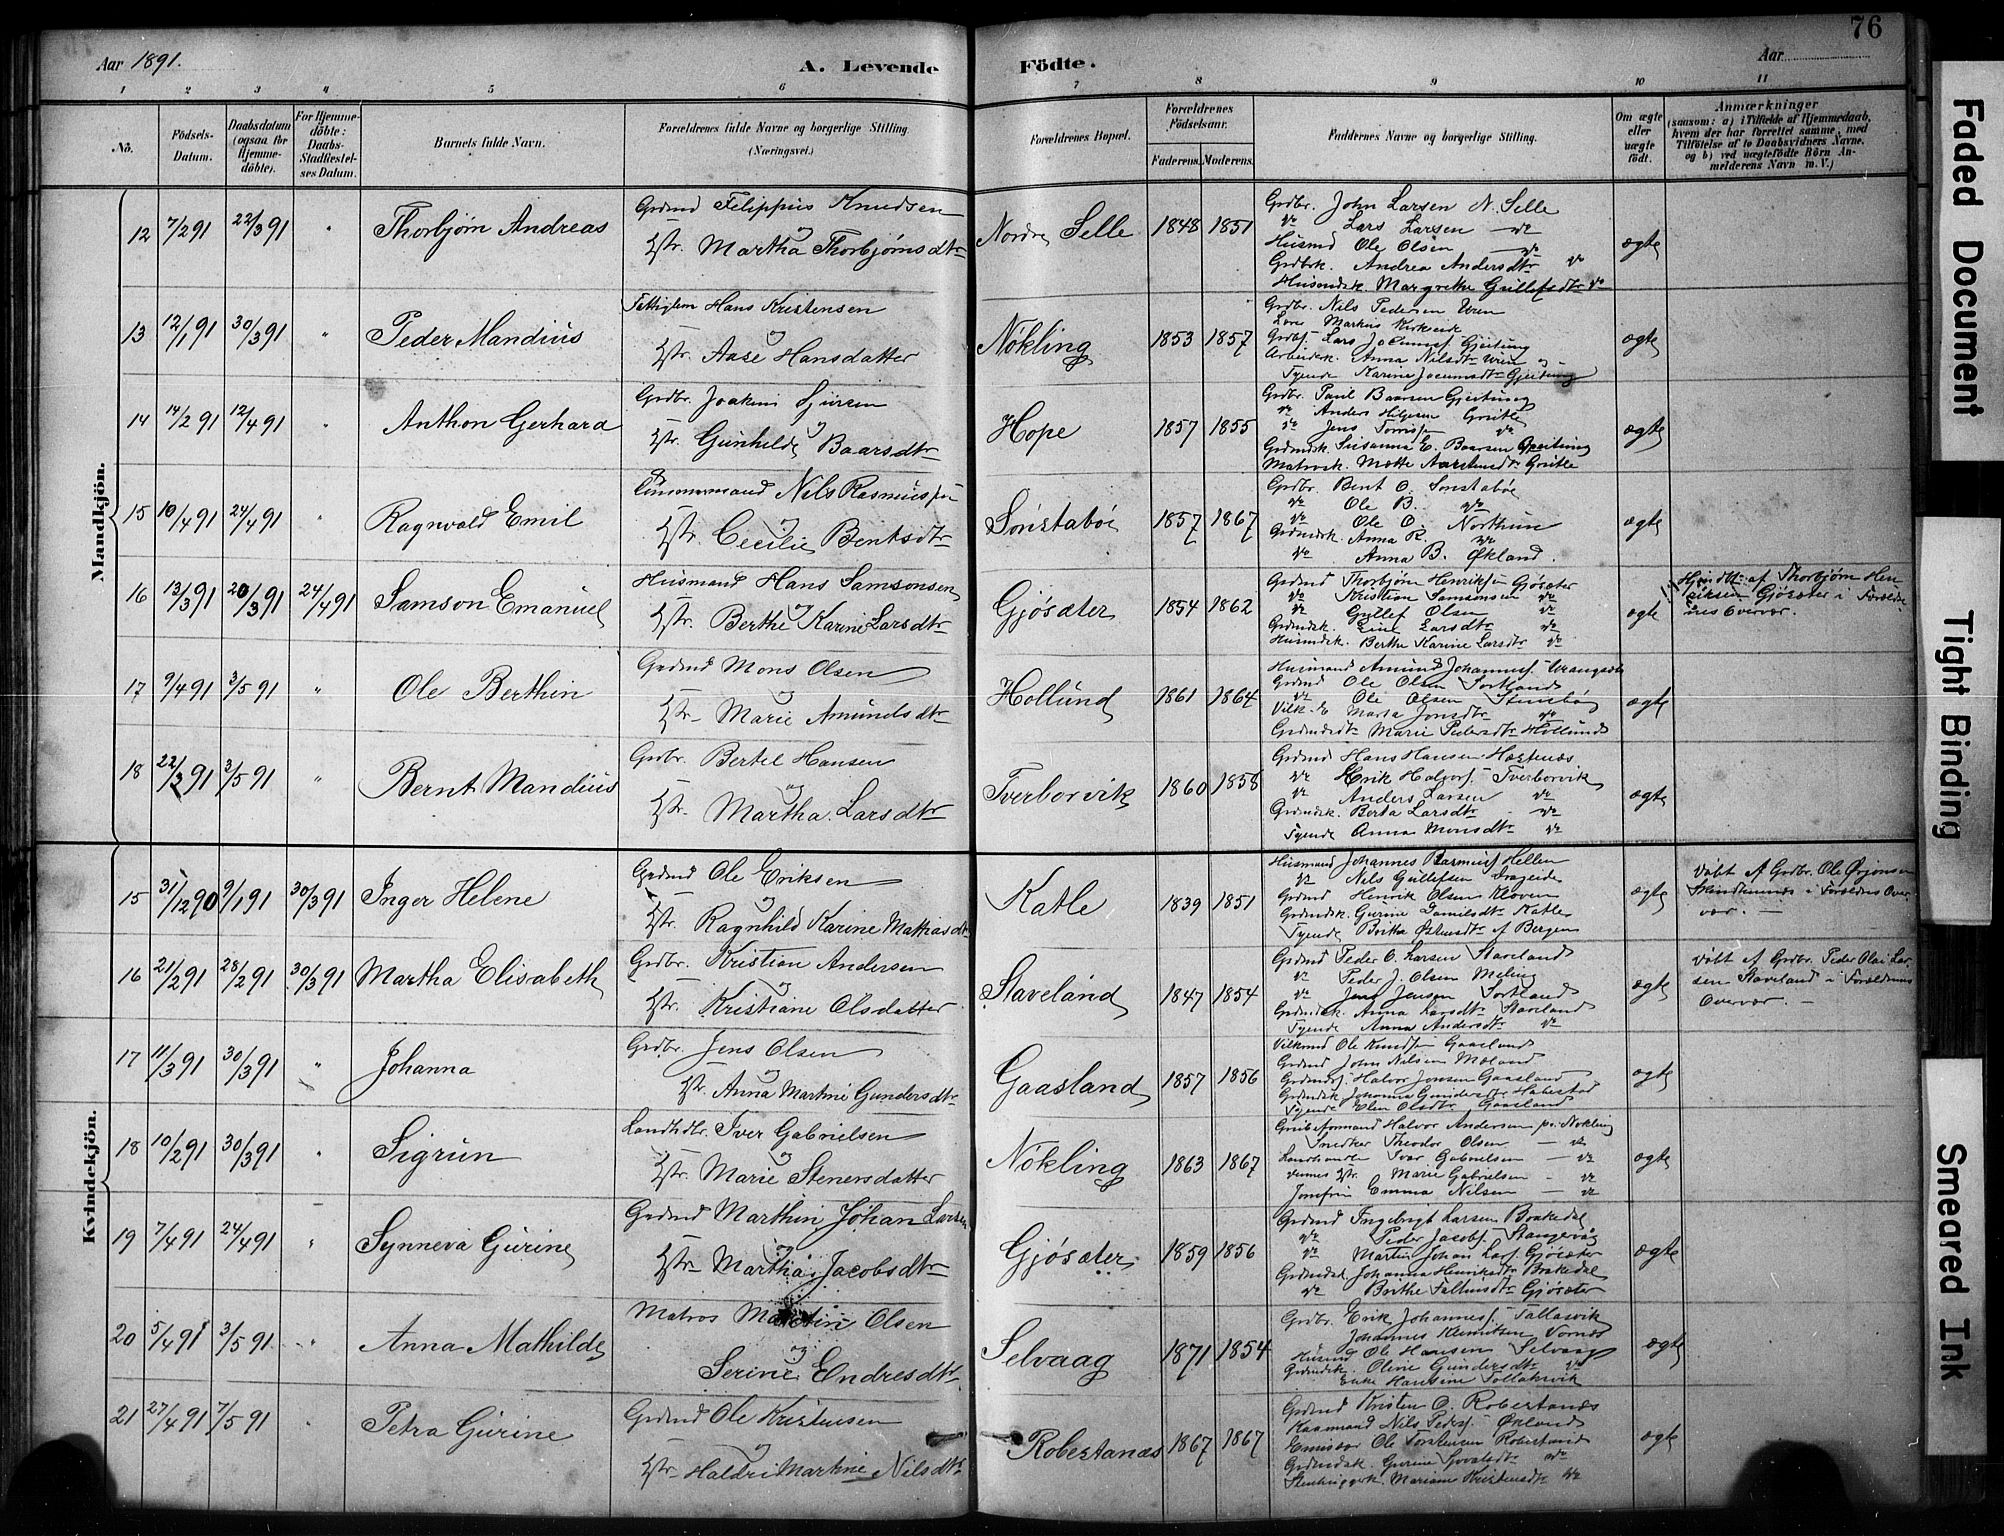 76
Aar 1891.
A. Levende Födte.
Aar
1 2 3 4 5 6 7 8 9 10 11
No.
Födsels-Datum.
Daabsdatum (ogsaa for Hjemmedöbte).
For Hjemmedöbte: Daabs-Stadfæstelses Datum.
Barnets fulde Navn.
Forældrenes fulde Navne og borgerlige Stilling. (Næringsvei.)
Forældrenes Bopæl.
Forældrenes Födselsaar.
Faderens. Moderens.
Faddernes Navne og borgerlige Stilling.
Om ægte eller uægte födt.
Anmærkninger (saasom: a) i Tilfælde af Hjemmedaab, hvem der har forrettet samme, med Tilföielse af to Daabsvidners Navne, og b) ved uægtefödte Börn Anmelderens Navn m. V.)
Mandkjön.
12 7/2 91 22/3 91 " Thorbjørn Andreas
Grdmd Filippus Knudsen
og
Hstr. Martha Thorbjørnsdtr
Nordre Selle 1848 1851
Grdbr. John Larsen N. Selle
do Lars Larsen do
Husmd Ole Olsen do
Grdbrk. Andrea Andersdtr do
Husmdsk. Margrethe Gullefsdtr do
ægte
13 12/1 91 30/3 91 " Peder Mandius
Fattiglem Hans Kristensen
og
Hstr. Aase Hansdatter
Nökling 1853 1857
Grdbr. Nils Pedersen Vren
Markus Kirkevik
Grdbr. Lars Gjeitung
Arbeidsk. Anna Nilsdtr Vren
Tyende Karine Gjeitung
ægte
14 14/2 91 12/4 91 " Anthon Gerhard
Grdbr. Joakim Sjursen
og
Hstr. Gunhilde Baarsdtr
Hope 1857 1855
Grdbr. Paul Baarsen Gjeitung
do Anders
do Jens do
Grdmdsk. Susanna E. Baarsen Gjeitung
Matrosk. Mette
ægte
15 10/4 91 24/4 91 " Ragnvald Emil
Nils Rasmussen
og
Hstr. Cecilie Bentsdtr
Sönstaböe 1857 1867
Grdbr. Bent O. Sönstaböe
do Ole B. do
do Ole O. Northun
Grdmdsk. Anna R. do
do Anna B. Økland
ægte
16 13/3 91 20/3 91 24/4 91 Samson Emanuel
Husmand Hans Samsonsen
og
Hstr. Berthe Karine Larsdtr
Gjösæter 1854 1862
Grdmd Thorbjørn Henriksen Gjösæter
do Kristian Samsonsen do
do Gullef Olsen do
Grdmdsk. Line Larsdtr do
Husmdsk. Berthe Karine Larsdtr do
ægte
af Thorbjørn Hen
riksen Gjösæter i Forældre
nes Overvær.
17 9/4 91 3/5 91 " Ole Berthin
Grdmd Mons Olsen
og
Hstr. Marie Amundsdtr
Hollund 1861 1864
Husmand Amund Johanness.
Grdmd Ole Olsen Sortland
do Ole Olsen Stensbø
Marta Jonsdtr do
Marie Pedersdtr Hollund
ægte
18 22/3 91 3/5 91 " Bernt Mandius
Grdbr. Bertel Hansen
og
Hstr. Martha Larsdtr
Tverborvik 1860 1858
Grdmd Hans Hansen Hæstenæs
do Erik Halvors. Tverborvik
do Anders Larsen do
Grdmdsk. Berta Larsdtr do
Tyende Anna Monsdtr do
ægte
Kvindekjön.
15 31/12 90 9/1 91 30/3 91 Inger Helene
Grdmd Ole Eriksen
og
Hstr. Ragnhild Karine Mathiasdtr
Katle 1839 1851
Husmand Johannes Rasmuss. Hellen
do Nils Gullefsen
Grdmd Henrik Olsen Kloven
Grdmdsk. Gurine Danielsdtr Katle
Tyende Britha af Bergen
ægte
Døbt af Grdbr. Ole Ørjansen
i Forældres Over
vær. —
16 21/2 91 28/2 91 30/3 91 Martha Elisabeth
Grdbr. Kristian Andersen
og
Hstr. Kristiane Olsdatter
Staveland 1847 1854
Grdmd Peder O. Larsen Staveland
do Peder J. Olsen Meling
do Jens Jensen Sortland
Grdmdsk. Anna Larsdtr Staveland
Tyende Anna Andersdtr do
ægte
Døbt af Grdbr. Peder Olai Lar
sen Staveland i Forældrenes
Overvær. —
17 11/3 91 30/3 91 " Johanna
Grdbr. Jens Olsen
og
Hstr. Anna Martine Gundersdtr
Gaasland 1857 1856
Ole Knudsen Gaasland
Grdmd John Nilsen Mæland
Halvor Jonsen Gaasland
Grdmdsk. Johanna Gundersdtr
Tyende Elen Olsdtr Gaasland
ægte
18 10/2 91 30/3 91 " Sigrun
Landhdlr. Iver Gabrielsen
og
Hstr. Marie Stenersdatter
Nökling 1863 1867
Halvor Andersen pr. Nökling
Snedker Theodor Olsen — do
Landhandler Iver Gabrielsen — do
dennes Hstr. Marie Gabrielsen - do
Jomfru Emma Nilsen — do
ægte
19 7/4 91 24/4 91 " Synneva Gurine
Grdmd Marthin Johan Larsen
og
Hstr. Martha Jacobsdtr
Gjösæter 1859 1856
Grdmd Ingebrigt Larsen Brakedal
do Peder Jacobs. Stangevåg
do Martin Johan Lars. Gjösæter
Grdmdsk. Johanna Henriksdtr Brakedal
do Berthe Gjösæter
ægte
20 5/4 91 3/5 91 " Anna Mathilde
Matros Martin Olsen
og
Serine Endresdtr
Selvaag 1871 1854
Grdbr. Erik Johannes. Tollaksvik
Johannes Klemitsen Vornæs
Husmd Ole Hansen Selvaag
Grdmdsk. Oline Gundersdtr do
Enke Hansine Tollaksvik
ægte
21 27/4 91 7/5 91 " Petra Gurine
Grdmd Ole Kristensen
og
Hstr. Haldri Martine Nilsdtr
Robertanæs 1867 1867
Grdmd Kristen O. Robertanæs
Kaarmand Nils Peders. Økland
Ole Torstensen Robertanæs
Grdmdsk. Gurine do
Mariane Kristensdtr do
ægte
Faded Document
Tight Binding
Smeared Ink